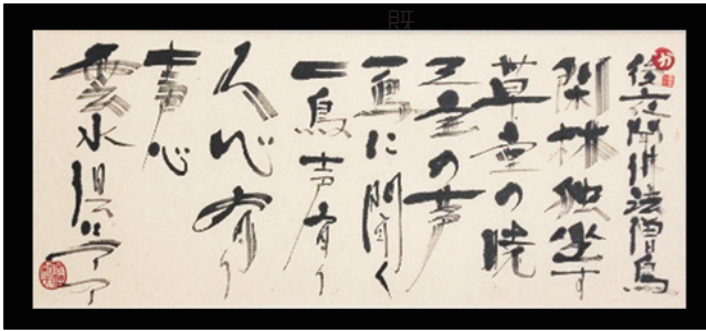 後夜聞佛法僧鳥
閑林独坐す
草堂の暁
三宝の声
一鳥に聞く
一鳥声有り
人心有り
声心
雲水倶に了了